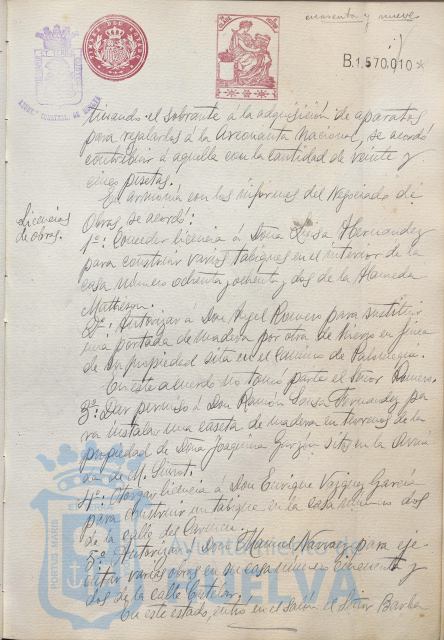 cuarenta y nueve
B.1.570.010*
tinando el sobrante á la adquisición de aparatos
para regalarlos á la Aeronauta Nacional, se acordó
contribuir á aquella con la cantidad de veinte y
cinco pesetas.
En armonía con los informes del Negociado de
Obras se acordó:
Licencias
de obras.
1º: Conceder licencia á Doña Luisa Hernandez
para construir varios tabiques en el interior de la
casa número ochenta y ochenta y dos de la Alameda
Matheson.
2º: Autorizar á Don Angel Romero para sustituir
una portada de madera por otra de hierro en finca
de su propiedad sita en el Camino de
En este acuerdo no tomó parte el Señor Romero.
3º: Dar permiso á Don Ramón Sousa Fernandez pa
ra instalar una caseta de madera en terrenos de la
propiedad de Doña Joaquina Garzón sitos en la Aveni
da de M.
4º: Otorgar licencia á Don Enrique Vazquez García
para construir un tabique en la casa número dos
de la calle del
5º: Autorizar á Don Manuel Narvaez para eje
cutar varias obras en su casa número cincuenta y
dos de la calle
En este estado, entró en el salón el Señor Barba
PORTUS MARIS
Ayuntamiento de
HUELVA